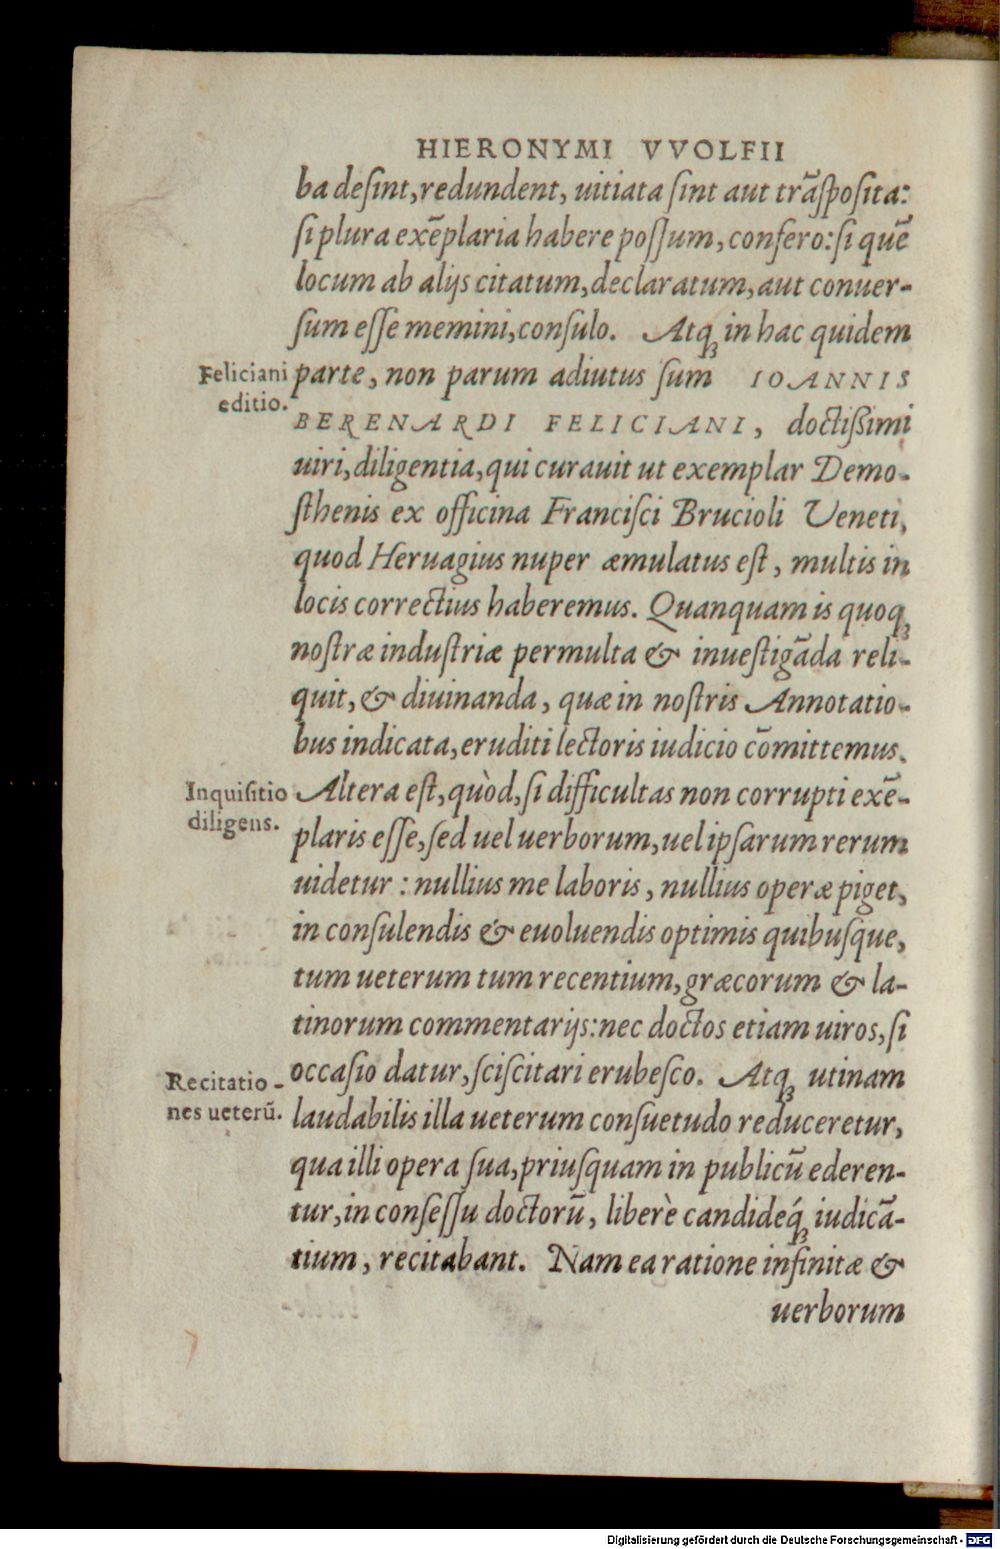 HIERONYMI VVOLFII
ba desint, redundent, uitiata sint aut trãsposita:
si plura exẽplaria habere possum, confero: si quẽ
locum ab alijs citatum, declaratum, aut conuer-
sum esse memini, consulo. Atq; in hac quidem
Feliciani
editio.
parte, non parum adiutus sum IOANNIS
BERENARDI FELICIANI, doctißimi
uiri, diligentia, qui curauit ut exemplar Demo-
sthenis ex officina Francisci Brucioli Veneti,
quod Heruagius nuper æmulatus est, multis in
locis correctius haberemus. Quanquam is quoq;
nostræ industriæ permulta & inuestigãda reli-
quit, & diuinanda, quæ in nostris Annotatio-
bus indicata, eruditi lectoris iudicio cõmittemus.
Inquisitio
diligens.
Altera est, quòd, si difficultas non corrupti exẽ-
plaris esse, sed uel uerborum, uel ipsarum rerum
uidetur: nullius me laboris, nullius operæ piget,
in consulendis & euoluendis optimis quibusque,
tum ueterum tum recentium, græcorum & la-
tinorum commentarijs: nec doctos etiam uiros, si
Recitatio-
nes ueterũ.
occasio datur, sciscitari erubesco. Atq; utinam
laudabilis illa ueterum consuetudo reduceretur,
qua illi opera sua, priusquam in publicũ ederen-
tur, in consessu doctorũ, liberè candideq́; iudicã-
tium, recitabant. Nam ea ratione infinitæ &
uerborum
Digitalisierung gefördert durch die Deutsche Forschungsgemeinschaft - DFG